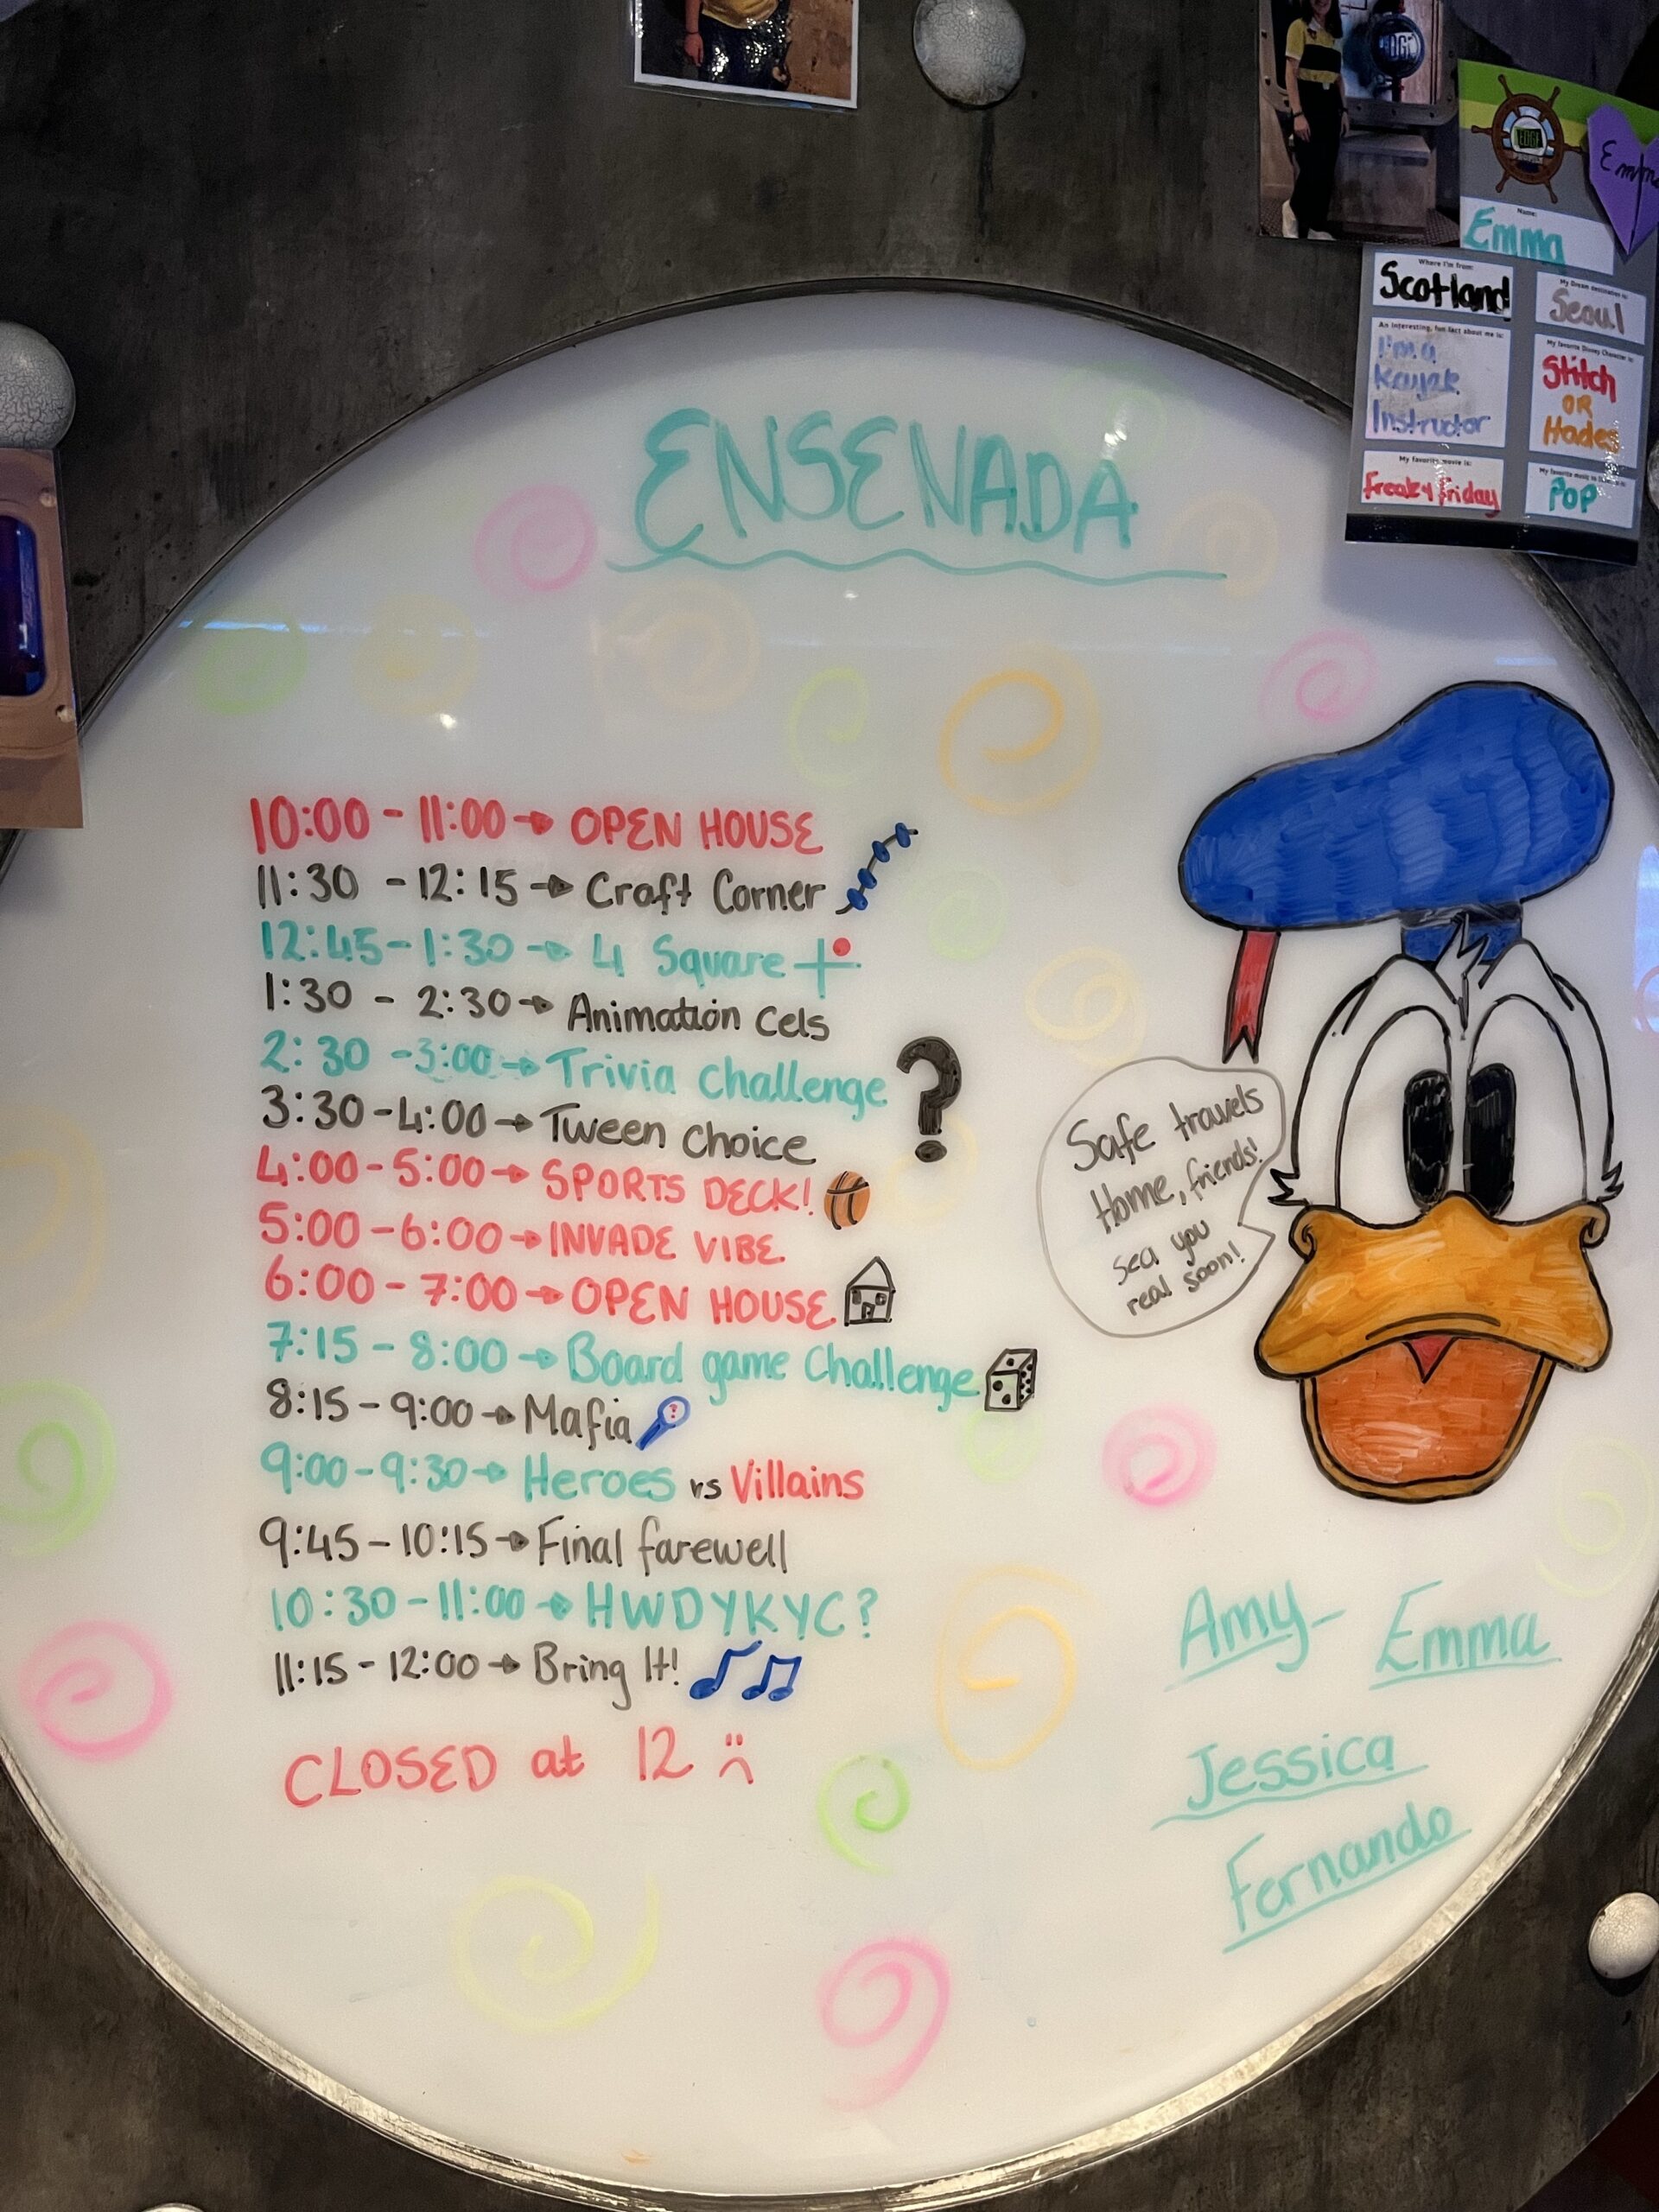 EDGE
EDGE
Emma
Name:
Emma
Where I'm from:
Scotland
My Dream destination is:
Seoul
An interesting, fun fact about me is:
I'm a
Kayak
Instructor
My favorite Disney Character is:
Stitch
OR
Hades
My favorite movie is:
Freaky Friday
POP
ENSENADA
10:00 - 11:00 → OPEN HOUSE
11:30 - 12:15 → Craft Corner
12:45 - 1:30 → 4 Square
1:30 - 2:30 → Animation Cels
2:30 - 3:00 → Trivia Challenge ?
3:30 - 4:00 → Tween Choice
4:00 - 5:00 → SPORTS DECK!
5:00 - 6:00 → INVADE VIBE
6:00 - 7:00 → OPEN HOUSE
7:15 - 8:00 → Board game Challenge
8:15 - 9:00 → Mafia
9:00 - 9:30 → Heroes vs Villains
9:45 - 10:15 → Final farewell
10:30 - 11:00 → HWDYKYC?
11:15 - 12:00 → Bring It!
CLOSED at 12 :(
Safe travels
Home, friends!
sea you
real soon!
Amy - Emma
Jessica
Fernando